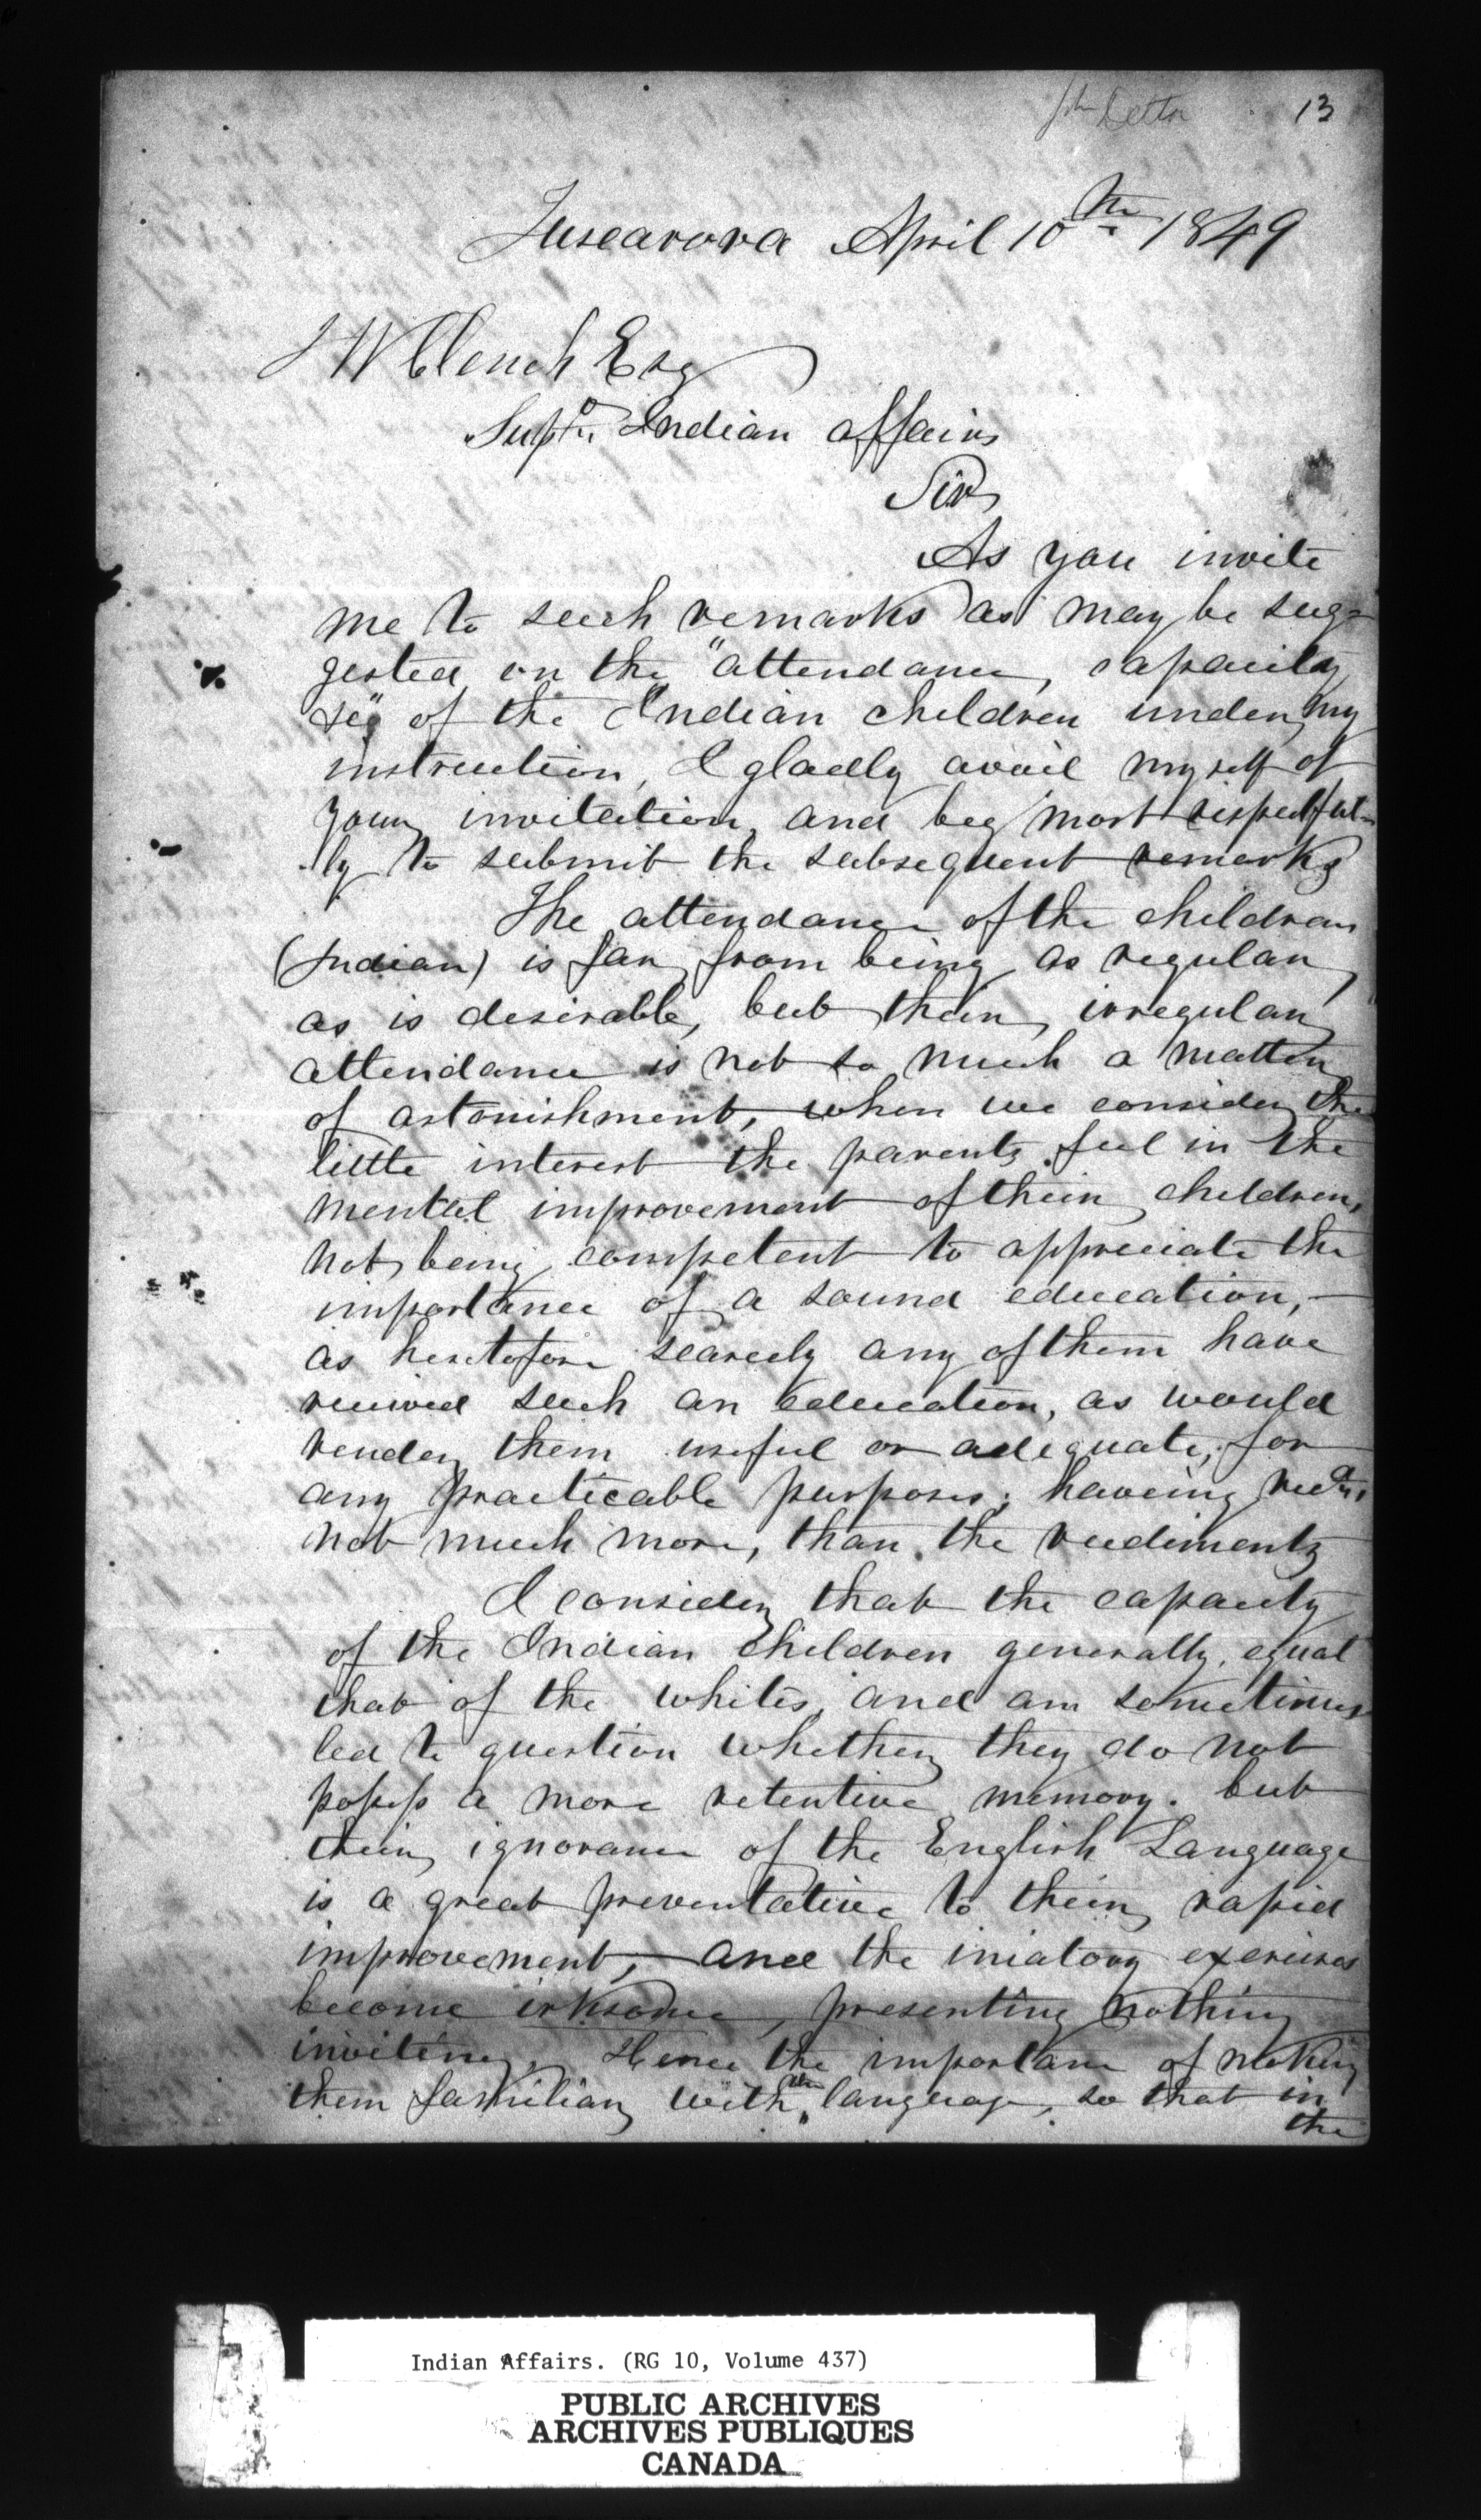 13
Tuscarora April 10th 1849
J W Clench Esq
Supt. Indian affairs
Sir,
As you invite
me to such remarks as may be sug-
gested on the "attendance, capacity
&c" of the Indian children under my
instruction, I gladly avail myself of
your invitation, and beg most respectful-
ly to submit the subsequent remarks
The attendance of the children
(Indian) is far from being as regular,
as is desirable, but their irregular
attendance is not so much a matter
of astonishment, when we consider the
little interest the parents feel in the
mental improvement of their children,
not being competent to appreciate the
importance of a sound education, -
as heretofore scarcely any of them have
received such an education, as would
render them useful or adequate, for
any practicable purposes; having recd.
not much more, than the rudiments
I consider that the capacity
of the Indian children generally, equal
that of the whites, and am sometimes
led to question whether they do not
possess a more retentive memory. but
their ignorance of the English Language
is a great preventative to their rapid
improvement, and the iniatory exercises
become irksome, presenting nothing
inviting. Hence the importance of making
them familiar with the language, so that in
the
Indian Affairs. (RG 10, Volume 437)
PUBLIC ARCHIVES
ARCHIVES PUBLIQUES
CANADA